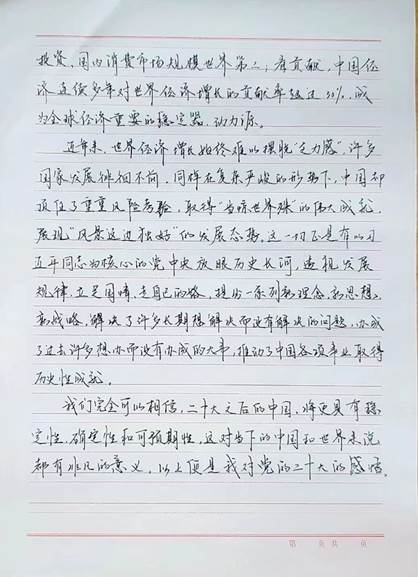 投资、国内消费市场规模世界第二；看贡献，中国经
济连续多年对世界经济增长的贡献率超过30%，成
为全球经济重要的稳定器、动力源。
近年来，世界经济增长始终难以摆脱"乏力感"，许多
国家发展徘徊不前。同样在复杂严峻的形势下，中国却
顶住了重重风险考验，取得"当惊世界殊"的伟大成就，
展现"风景这边独好"的发展态势。这一切正是有以习
近平同志为核心的党中央放眼历史长河，透视发展
规律，立足国情、走自己的路，提出一系列新理念、新思想、
新战略，解决了许多长期想解决而没有解决的问题，办成
了过去许多想办而没有办成的大事，推动了中国各项事业取得
历史性成就。
我们完全可以相信，二十大之后的中国，将更具有稳
定性、确定性和可预期性，这对当下的中国和世界来说
都有非凡的意义，以上便是我对党的二十大的感悟。
第 页 共 页